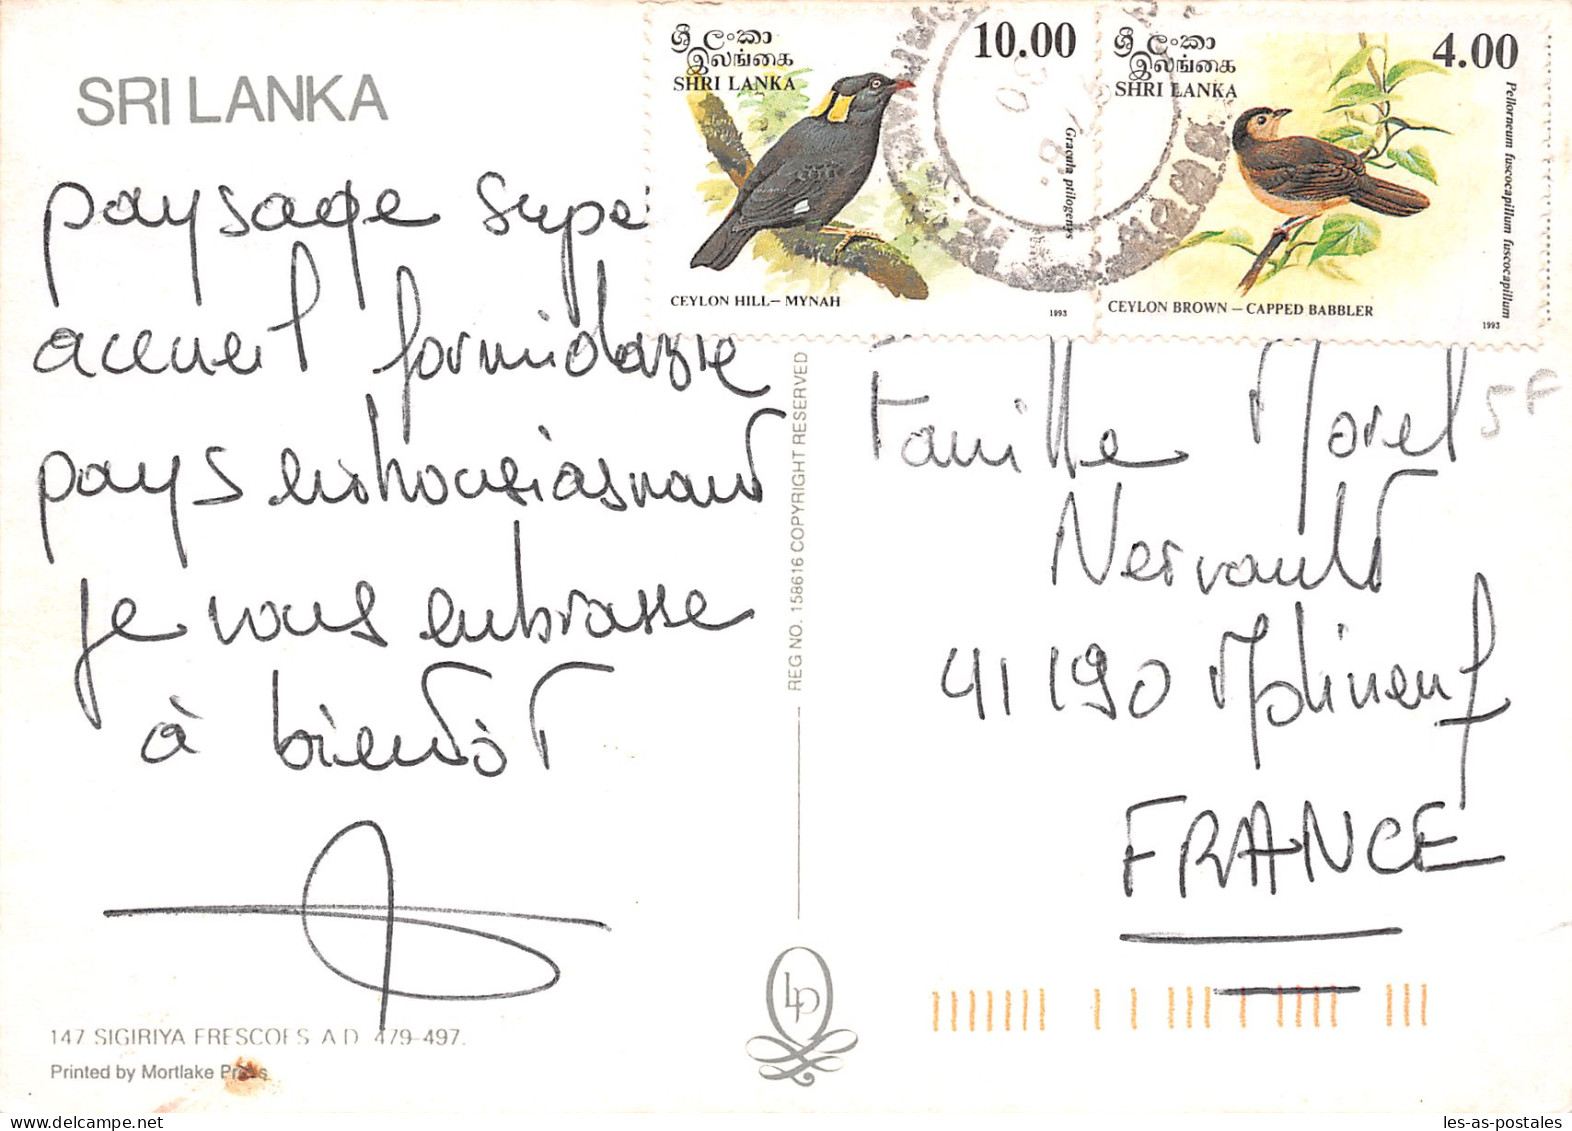 SRI LANKA
paysage supe
accueil formidable
pays enthousiasmant
je vous embrasse
à bientôt
147 SIGIRIYA FRESCOES A.D. 479-497.
Printed by Mortlake Press
REG NO. 158616 COPYRIGHT RESERVED
LP
ශ්‍රී ලංකා
இலங்கை
SHRI LANKA
10.00
Gracula ptilogenys
CEYLON HILL – MYNAH
1993
ශ්‍රී ලංකා
இலங்கை
SHRI LANKA
4.00
Pellorneum fuscocapillum fuscocapillum
CEYLON BROWN – CAPPED BABBLER
1993
Famille Morel
5F
Nervault
41190 Molineuf
FRANCE
les-as-postales